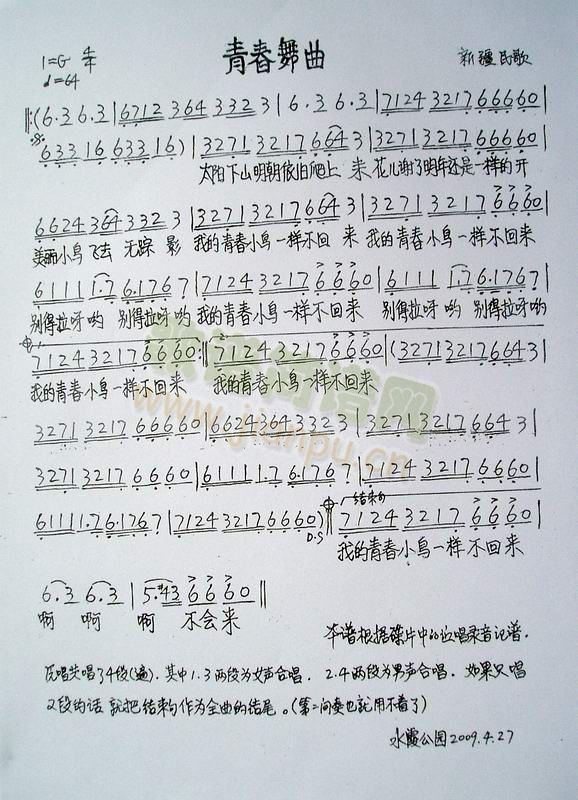 青春舞曲
1=G 4/4
新疆民歌
♩=64
‖:(6.3 6.3|6712 364 332 3|6.3 6.3|7124 3217 66660|
633 16 633 16)|3271 3217 664 3|3271 3217 66660|
太阳下山明朝依旧爬上 来 花儿谢了明年还是一样的开
6624 364 332 3|3271 3217 664 3|3271 3217 6660|
美丽小鸟飞去 无踪 影 我的青春小鸟一样不回 来 我的青春小鸟一样不回来
6111 1.7 6.176 7|7124 3217 6660|6111 1.7 6.176 7|
别得拉呀哟 别得拉呀哟 我的青春小鸟一样不回来 别得拉呀哟 别得拉呀哟
7124 3217 6660:‖7124 3217 6660|(3271 3217 664 3|
我的青春小鸟一样不回来 我的青春小鸟一样不回来
3271 3217 66660|6624 364 332 3|3271 3217 664 3|
3271 3217 6660|6111 1.7 6.176 7|7124 3217 6660|
6111 1.7 6.176 7|7124 3217 6660)‖7124 3217 6660|
结束句
D.S
我的青春小鸟一样不回来
6.3 6.3|5.#43 6660‖
啊 啊 啊 不会来
本谱根据碟片中的演唱录音记谱.
演唱共唱了4段(遍).其中1.3两段为女声合唱.2.4两段为男声合唱.如果只唱
2段的话就把结束句作为全曲的结尾。(第二间奏也就用不着了)
水霞公园2009.4.27
www.jianpu.cn